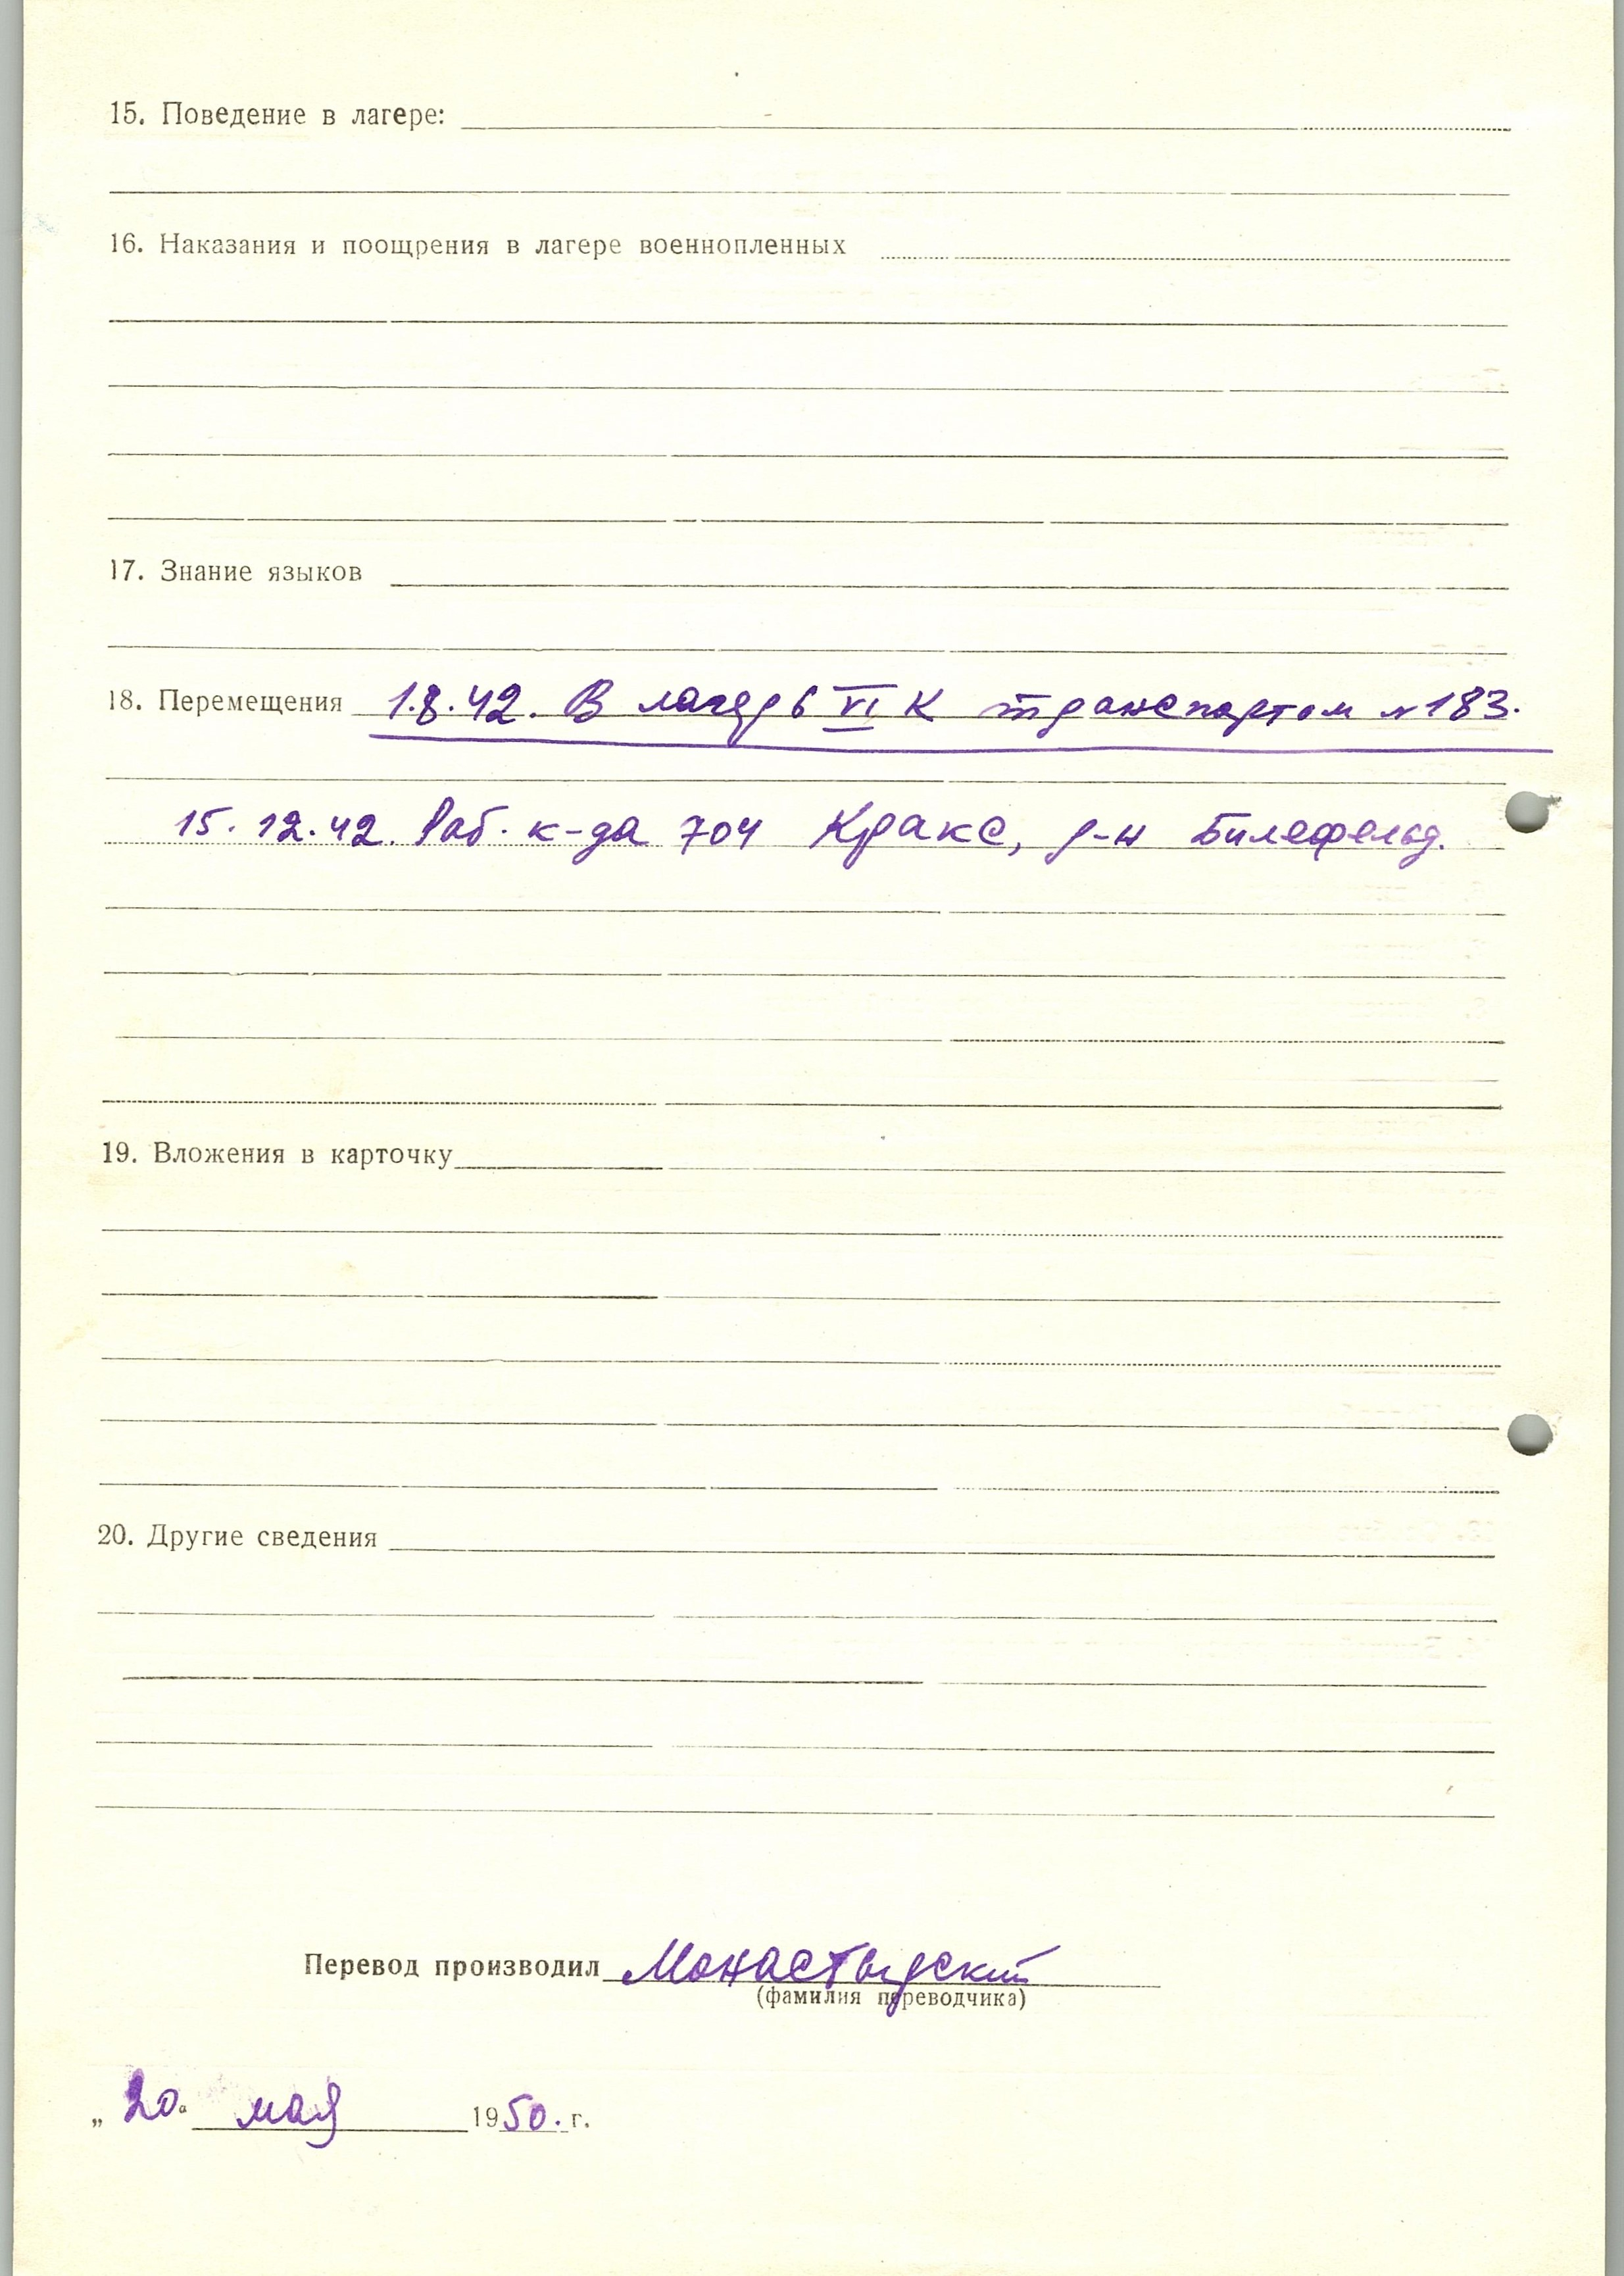 15. Поведение в лагере:
16. Наказания и поощрения в лагере военнопленных
17. Знание языков
18. Перемещения 1.8.42. В лагерь VI К транспортом №183.
15.12.42. Раб. к-да 704 Кракс, р-н Билефельд.
19. Вложения в карточку
20. Другие сведения
Перевод производил Монастырский
(фамилия переводчика)
„20“ мая 1950. г.